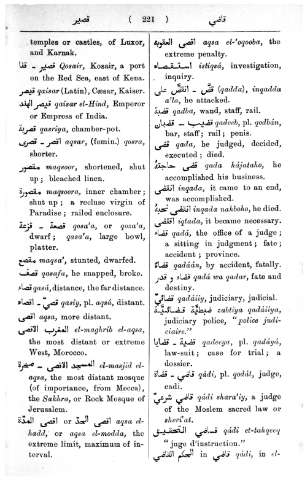 قصير ( 221 ) قاضي
temples or castles, of Luxor,
and Karnak.
قصير - قنا Qosair, Kosair, a port
on the Red Sea, east of Kena.
قيصر qaisar (Latin), Cæsar, Kaiser.
قيصر الهند qaisar el-Hind, Emperor
or Empress of India.
قصرية qasriya, chamber-pot.
اقصر - قصرى aqsar, (femin.) qosra,
shorter.
مقصور maqsoor, shortened, shut
up; bleached linen.
مقصورة maqsoora, inner chamber;
shut up; a recluse virgin of
Paradise; railed enclosure.
قصعة qosa'a, or qoza'a,
dwarf; qasa'a, large bowl,
platter.
مقصع maqsa', stunted, dwarfed.
قصف qasafa, he snapped, broke.
distance, the far distance.
pl. aqsá, distant.
اقصى aqsa, more distant.
المغرب الاقصى el-maghrib el-aqsa,
the most distant or extreme
West, Morocco.
المسجد الاقصى - صخرة el-masjid el-
aqsa, the most distant mosque
(of importance, from Mecca),
the Sakhra, or Rock Mosque of
Jerusalem.
اقصى الحد or اقصى المدّة aqsa el-
hadd, or aqsa el-modda, the
extreme limit, maximum of in-
terval.
اقصى العقوبة aqsa el-'oqooba, the
extreme penalty.
استقصاء istiqsá, investigation,
inquiry.
(qadda), inqadda
a'la, he attacked.
قضبة qadba, wand, staff, rail.
قضيب - قضبان qadeeb, pl. qodbán,
bar, staff; rail; penis.
قضى qada, he judged, decided,
executed; died.
قضى حاجته qada hájataho, he
accomplished his business.
انقضى inqada, it came to an end,
was accomplished.
inqada nahboho, he died.
اقتضى iqtada, it became necessary.
قضاء qadá, the office of a judge;
a sitting in judgment; fate;
accident; province.
by accident, fatally.
قضاء و قدر qadá wa qadar, fate and
destiny.
قضائي qadáiiy, judiciary, judicial.
ضبطية قضائية zabtiya qadáiiya,
judiciary police, "police judi-
ciaire."
قضية - قضايا qadeeya, pl. qadáyá,
law-suit; case for trial; a
dossier.
قاضي - قضاة qádi, pl. qodát, judge,
cadi.
قاضي شرعي qádi shara'iy, a judge
of the Moslem sacred law or
sheri'at.
قاضي التحقيق qádi et-tahqeeq
"juge d'instruction."
in qádi, in el-